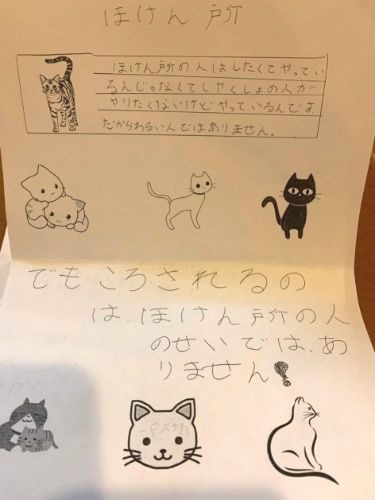 ほけん所
ほけん所の人はしたくてやってい
るんじゃなくてしやくしょの人が
やりたくないけどやっているんでは
だからわるい人ではありません。
でもころされるの
は、ほけん所の人
のせいでは、あ
りません!